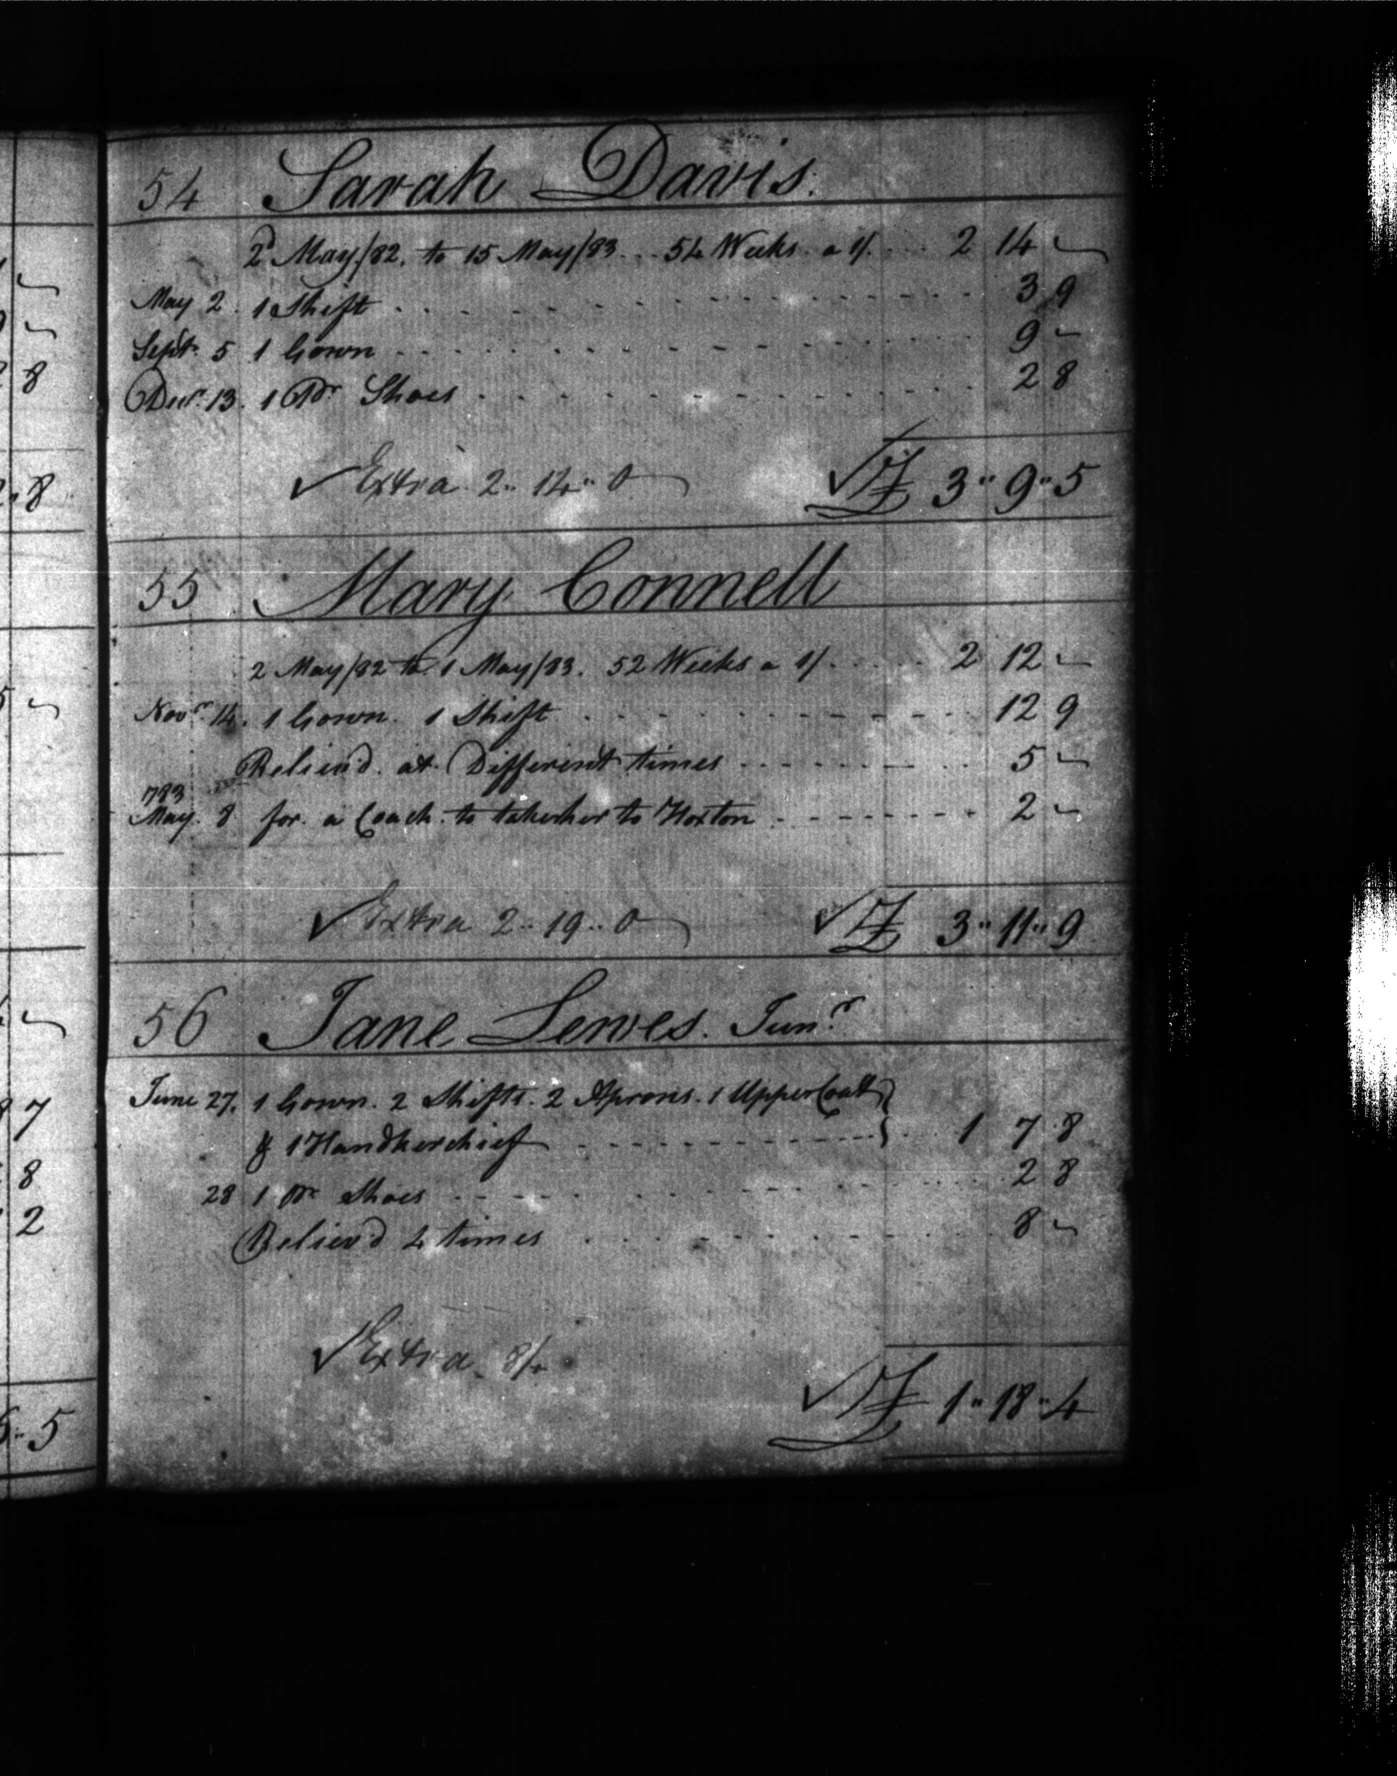 54 Sarah Davis.
2d May/82. to 15 May/83 . . . 54 Weeks a 1/. . . 2 14 -
May 2. 1 Shift . . . 3 9
Septr. 5 1 Gown . . . 9 -
Decr. 13. 1 Pr Shoes . . . 2 8
✓ Extra 2.. 14.. 0 ✓ £ 3.. 9.. 5
55 Mary Connell
2 May/82 to 1 May/83. 52 Weeks a 1/. . . . 2 12 -
Novr. 14. 1 Gown. 1 Shift . . . 12 9
Reliev'd. at Different times . . . 5 -
783
May. 8 for. a Coach to take her to Hoxton . . . 2 -
✓ Extra 2.. 19.. 0 ✓ £ 3.. 11.. 9
56 Jane Lewes. Junr.
June 27. 1 Gown. 2 Shifts. 2 Aprons. 1 Upper Coat }
& 1 Handkerchief . . . 1 7 8
28 1 Pr Shoes . . . 2 8
Reliev'd 4 times . . . 8 -
✓ Extra 8/-
✓ £ 1.. 18.. 4
8
2.. 8
8 7
8
2
5.. 5